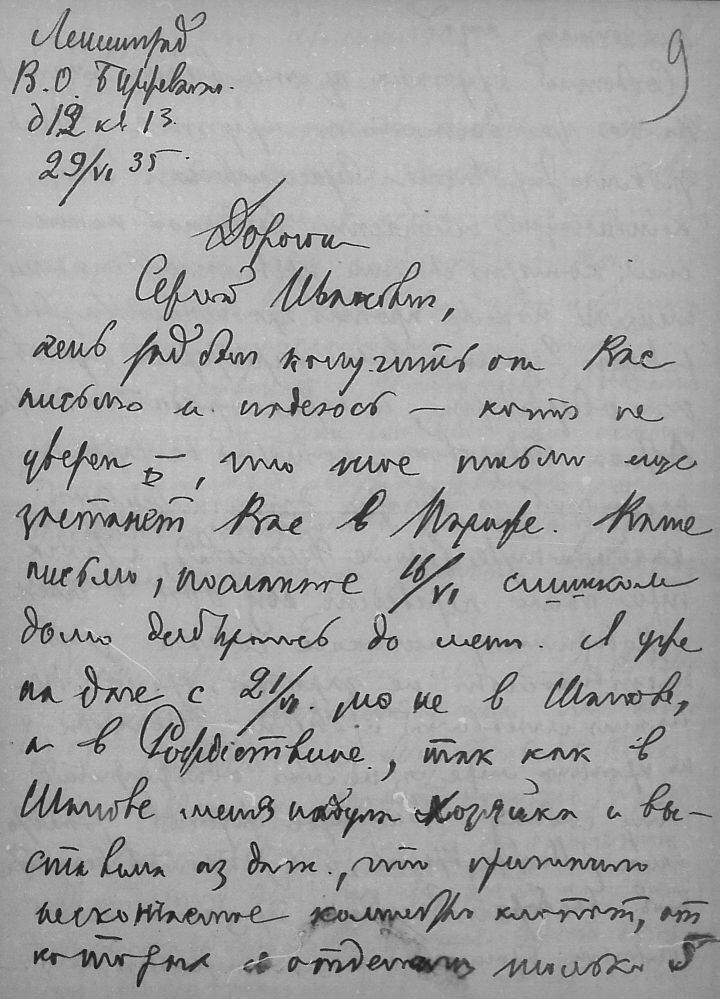 9
Ленинград
В. О. Биржевая.
д 12 кв 13.
29/VI 35.
Дорогой
Сергей Иванович,
очень рад был получить от Вас
письмо и надеюсь — хотя не
уверен —, что мое письмо еще
застанет Вас в Париже. Ваше
письмо, посланное 16/VI слишком
долго добиралось до меня. Я уже
на даче с 21/VI. но не в Шалове,
а в Рождествене, так как в
Шалове меня надула хозяйка и вы-
ставила из дачи, что причинило
нескончаемое количество хлопот, от
которых я отделался только 5